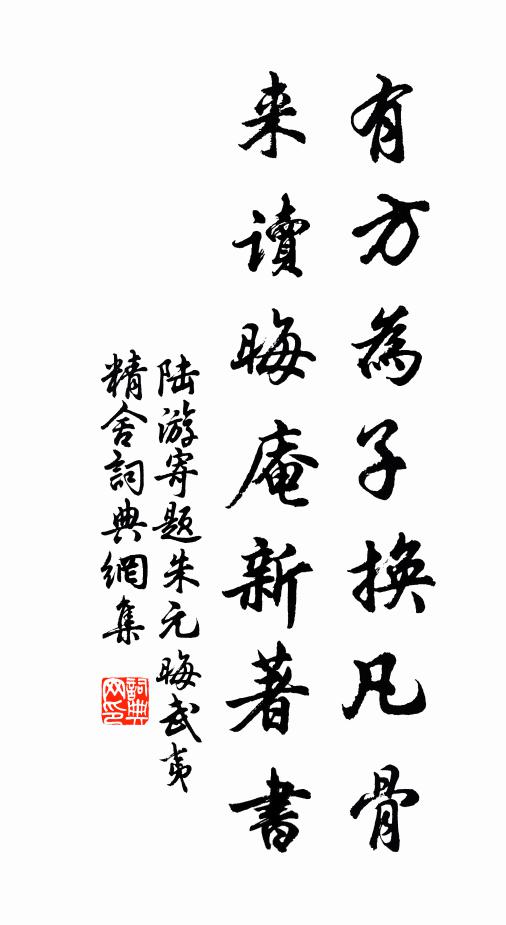 有方為子換凡骨
来讀晦庵新著書
陆游寄题朱元晦武夷
精舍詞典網集
詞典
网印